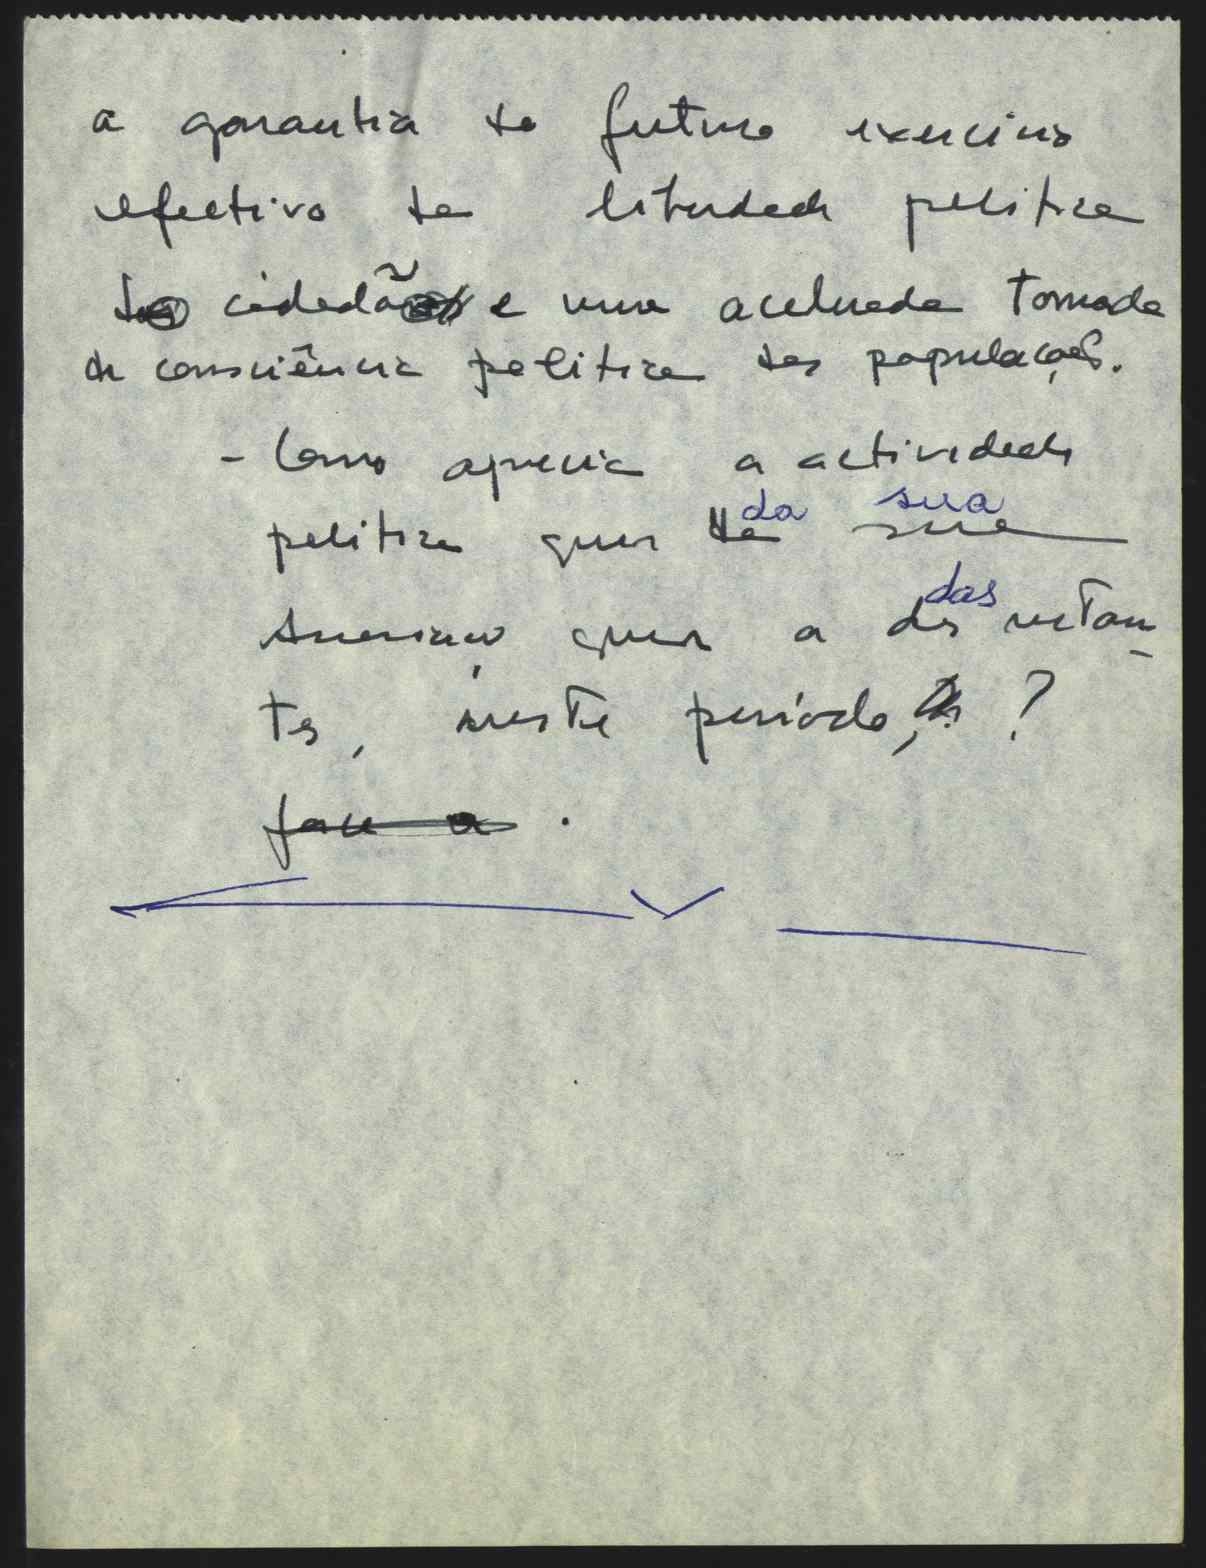 a garantia do futuro exercício
efectivo da liberdade política
do cidadão e uma acelerada tomada
de consciência política das populações.
- Como aprecia a actividade
da sua
política quer da sua
das
associação quer a das restan-
tes, neste período, ?
face a .